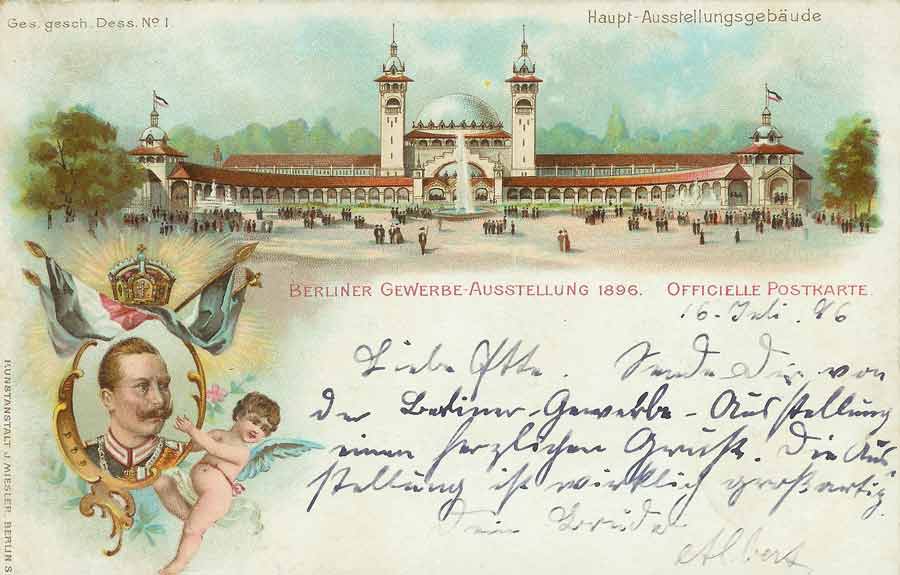 Ges. gesch. Dess. No 1
Haupt-Ausstellungsgebäude
BERLINER GEWERBE-AUSSTELLUNG 1896. OFFICIELLE POSTKARTE.
16. Juli. 96
Liebe Otte. Sende Dir von
der Berliner-Gewerbe-Ausstellung
einen herzlichen Gruß. Die Aus
stellung ist wirklich großartig.
Dein Bruder
Albert
KUNSTANSTALT J. MIESLER, BERLIN S